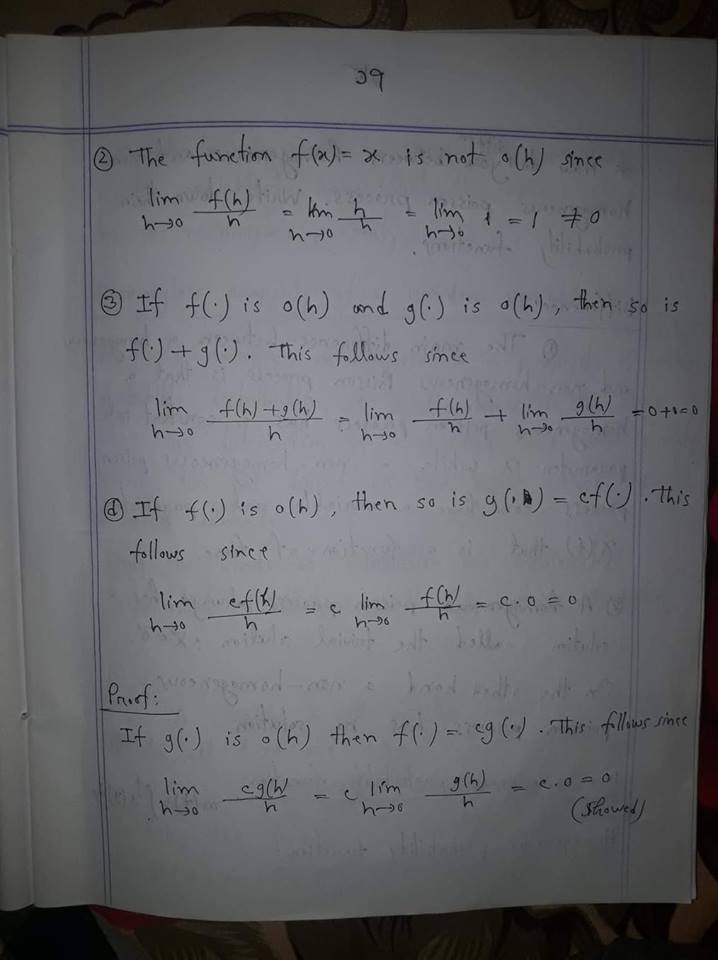 29
② The function f(x) = x is not o(h) since
lim h→0 f(h)/h = lim h→0 h/h = lim h→0 1 = 1 ≠ 0
③ If f(·) is o(h) and g(·) is o(h), then so is
f(·) + g(·). This follows since
lim h→0 f(h)+g(h)/h = lim h→0 f(h)/h + lim h→0 g(h)/h = 0+0=0
ⓓ If f(·) is o(h), then so is g(·) = cf(·). This
follows since
lim h→0 cf(h)/h = c lim h→0 f(h)/h = c·0 = 0
Proof:
If g(·) is o(h) then f(·) = cg(·). This follows since
lim h→0 cg(h)/h = c lim h→0 g(h)/h = c·0 = 0
(Showed)